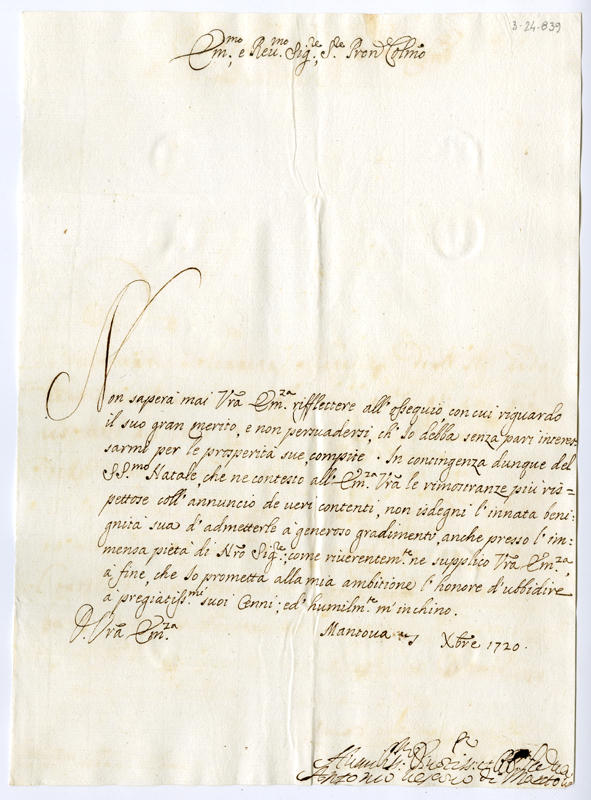 3-24-839
Em.mo e Reu.mo Sig.re, S.re Pron Colmo
Non saperà mai Vrā Em.za rifflettere all' ossequio, con cui riguardo
il suo gran merito, e non persuadersi, ch' Io debba senza pari interes,
sarmi per le prosperità sue, compite. In contingenza dunque del
SS.mo Natale, che ne contesto all' Em.za Vrā le rimostranze più ris=
pettose coll' annuncio de veri contenti, non isdegni l' innata beni,
gnità sua d' admetterle à generoso gradimento, anche presso l' im,
mensa pietà di Nrō Sig.re; come riverentem.te ne supplico Vrā Em.za,
a fine, che Io prometta alla mia ambitione l' honore d' ubbidire
à pregiatiss.mi suoi Cenni; ed' humilm.te m' inchino.
D. Vrā Em.za
Mantoua Xbre 1720.
Antonio Vescouo di Mantoua